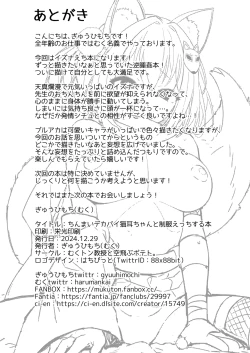 あとがき
こんにちは、ぎゅうひもちです!
全年齢のお仕事ではむく名義でやっております。
今回はイズナえち本になります!
ずっと描きたいなぁと思っていた逆睡姦本!
ついに描けて自分としても大満足です。
天真爛漫で元気いっぱいのイズナですが、
先生のおちんちんを前に欲望が抑えられなくなって、
心のままに身体が勝手に動いてしまう。
しまいには気持ち良さに頭が一杯になって…。
なぜだか発情シチュって相性がすごい良いですよね
ブルアカは可愛いキャラがいっぱいで色々描きたくなりますが、
今回のお話を思いついてからというもの
どこかで描きたいなぁと妄想を広げていました。
そんな妄想をたっぷりと詰め込んだつもりですので、
楽しんでもらえていたら嬉しいです!
次回の本は特に決めていませんが、
じっくりと何を描こうか考えようと思います!
それではまた次の本でお会いしましょう!
ぎゅうひもち(むく)
タイトル:ちんまいデカパイ狐耳ちゃんと制服えっちする本
印刷:栄光印刷
発行日:2024.12.29
発行者:ぎゅうひもち(むぐ)
サークル:むくトン教授と空飛ぶポテト。
ロゴデザイン:はちびっと(TwitterID:88x88bit)
ぎゅうひもちtwittr:gyuuhimochi
むくtwittr:harumankai
FANBOX:https://mukuton.fanbox.cc/
Fantia:https://fantia.jp/fanclubs/29997
ci-en:https://ci-en.dlsite.com/creator/15749